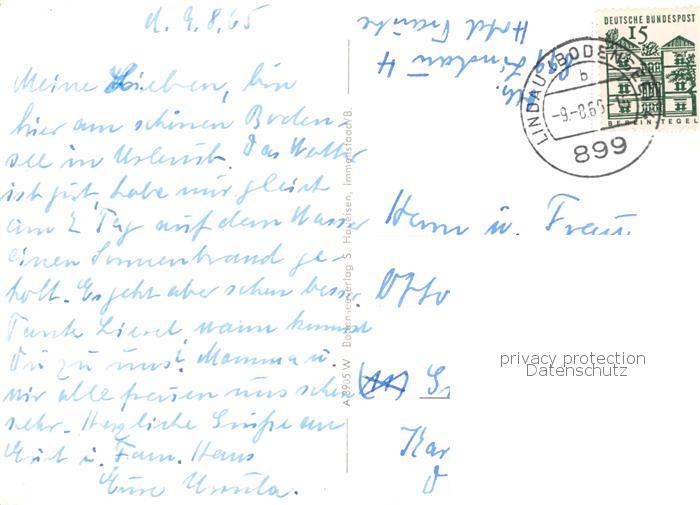 d. 9.8.65
Meine Lieben, bin
hier am schönen Boden-
see in Urlaub. Das Wetter
ist gut, habe mir gleich
am 2. Tag auf dem Wasser
einen Sonnenbrand ge-
holt. Es geht aber schon besser.
Tante Liesel wann kommst
Du zu uns? Mamma u.
wir alle freuen uns schon
sehr. Herzliche Grüße an
Euch u. Fam. Hans
Eure Ursula.
899 Lindau
Hotel
A 8905 W Bodenseeverlag S. Haueisen, Immenstaad/B.
DEUTSCHE BUNDESPOST
15
BERLIN-TEGEL
LINDAU (BODENSEE)
b
-9.-8.65-
899
Herrn u. Frau
Otto
Kar
privacy protection
Datenschutz